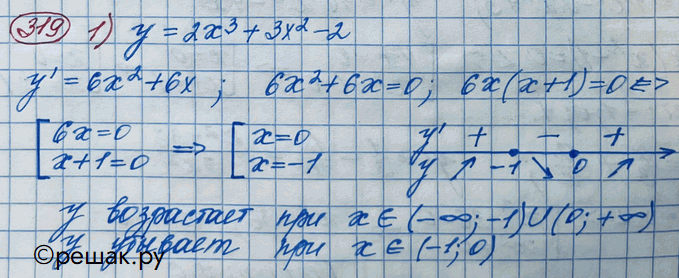 319 1) y = 2x³ + 3x² - 2
y' = 6x² + 6x ; 6x² + 6x = 0; 6x(x+1) = 0 <=>
[ 6x = 0 => [ x = 0 y' + - +
x+1 = 0 x = -1 y ↗ -1 ↘ 0 ↗
y возрастает при x ∈ (-∞; -1) U (0; +∞)
y убывает при x ∈ (-1; 0)
©решак.ру